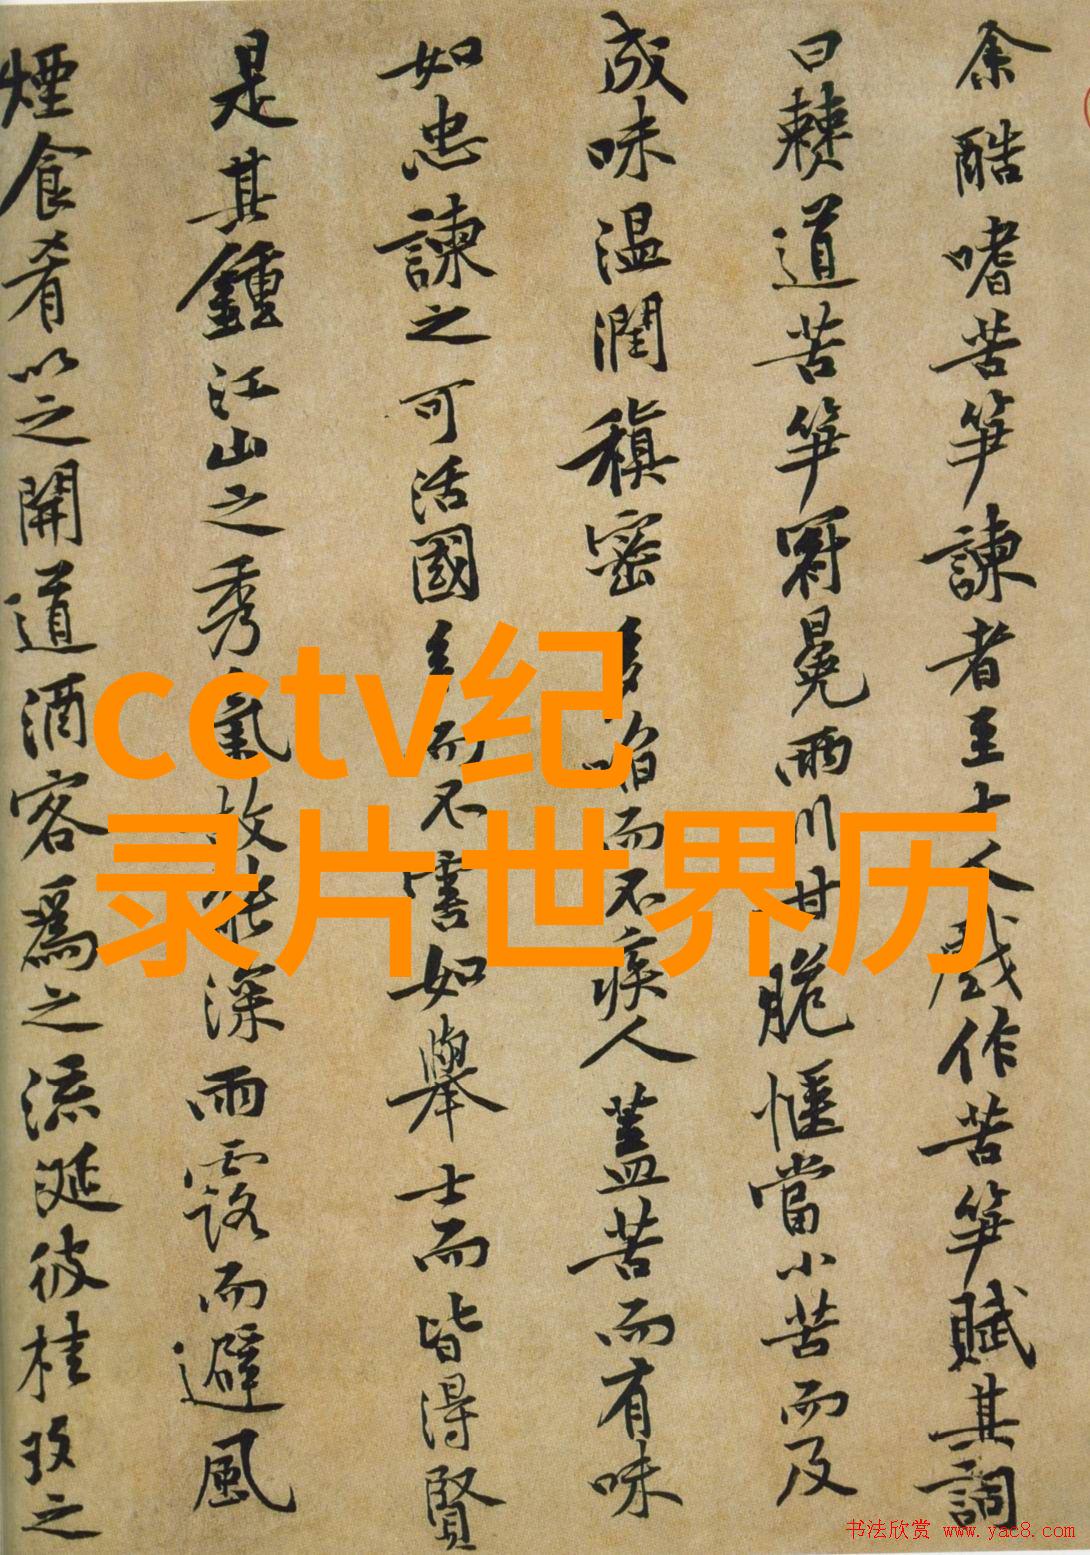 余酷嗜苦笋諫者至十人戲作苦笋賦其詞
曰僰道苦笋冠冕兩川甘脆愜當小苦而及
成味温潤縝密多啗而不疾人蓋苦而有味
如忠諫之可活國多而不害如舉士而皆得賢
是其鍾江山之秀氣故能深雨露而避風
煙食肴以之開道酒客爲之流涎彼桂玫之
cctv纪
录片世界历
书法欣赏 www.yac8.com